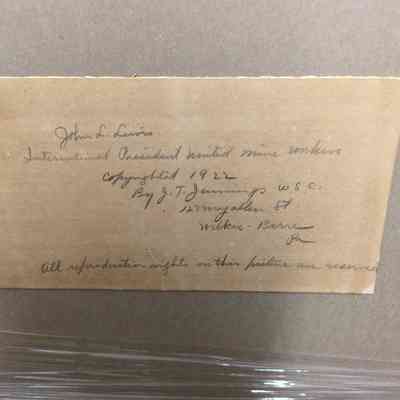 John L. Lewis
International President United mine workers
Copyrighted 1922
By J. T. Jennings W S C.
St
Wilkes-Barre
Pa
All reproduction rights on this picture are reserved